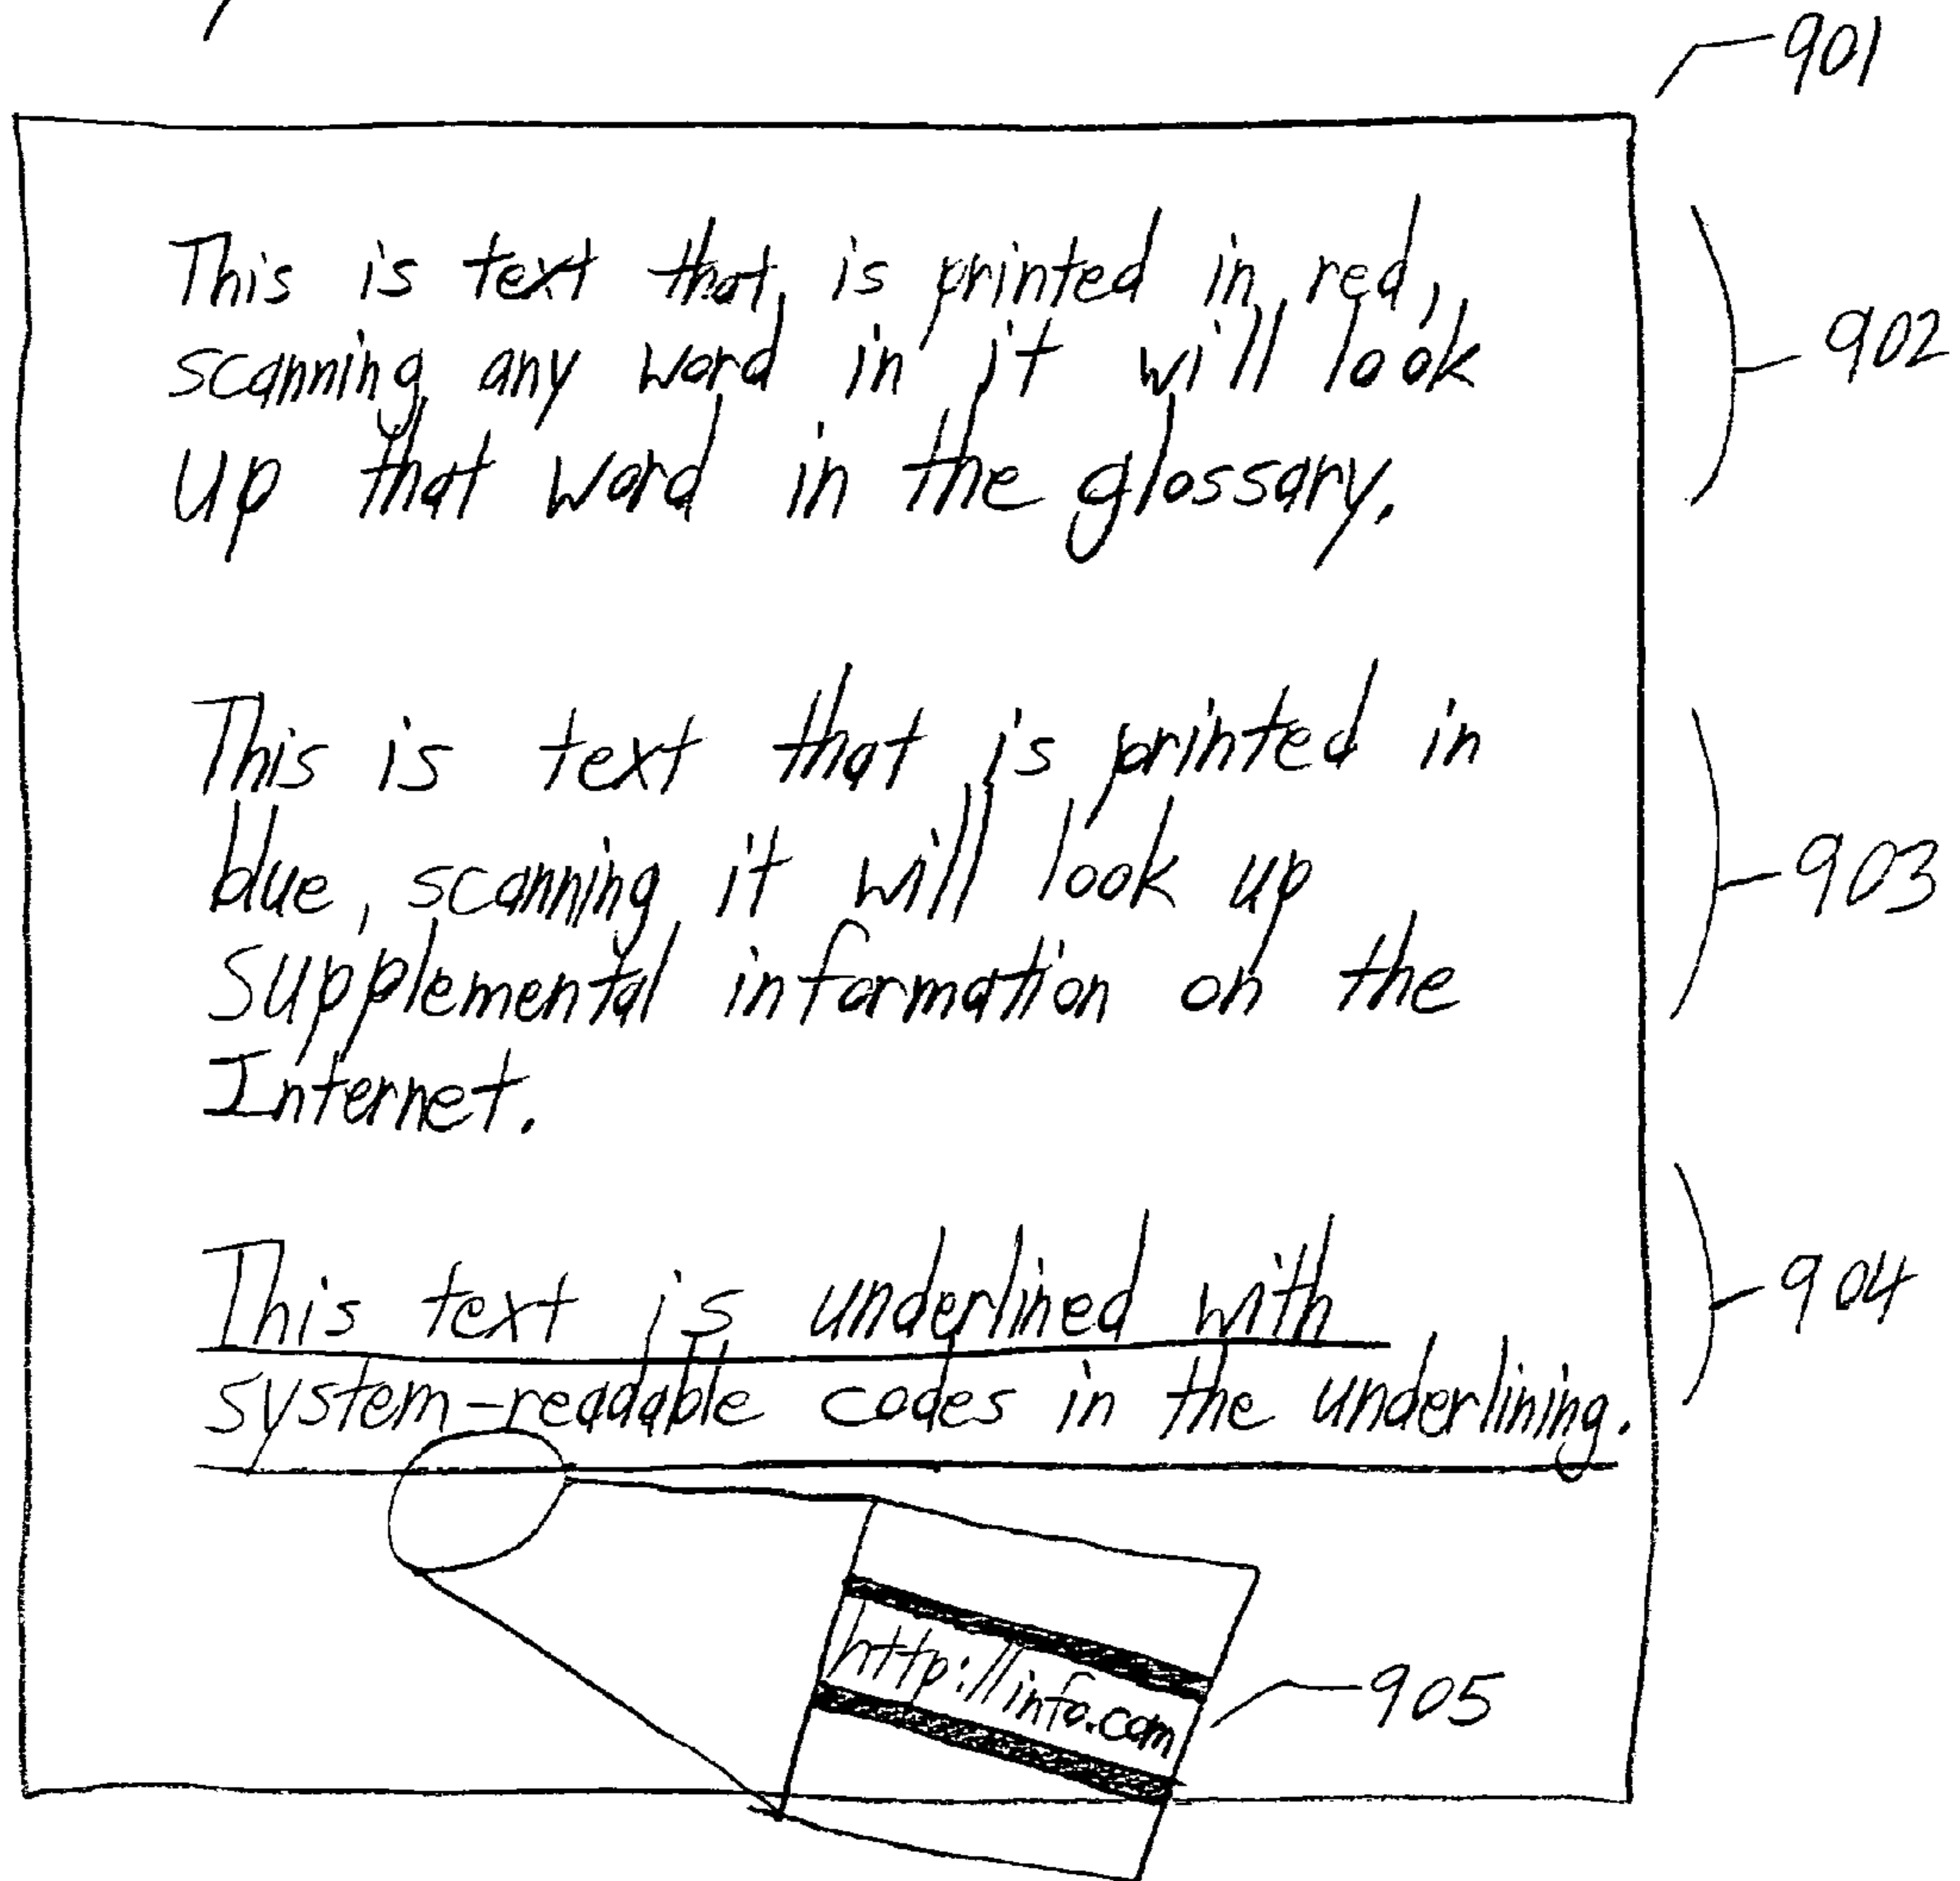 901
This is text that is printed in red,
scanning any word in it will look
902
up that word in the glossary.
This is text that is printed in
blue, scanning it will look up
903
Supplemental information on the
Internet.
This text is underlined with
904
system-readable codes in the underlining.
http://info.com
905